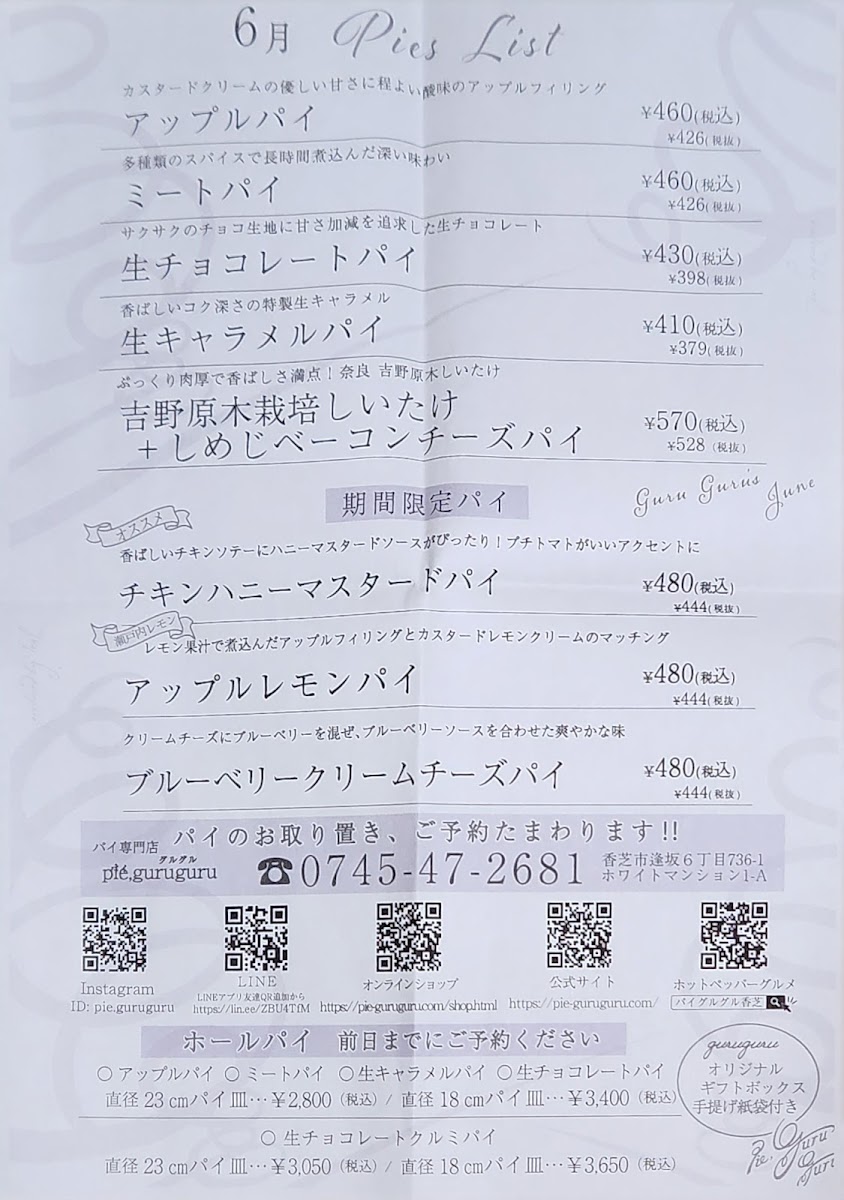 6月 Pies List
カスタードクリームの優しい甘さに程よい酸味のアップルフィリング
アップルパイ ¥460(税込)
¥426(税抜)
多種類のスパイスで長時間煮込んだ深い味わい
ミートパイ ¥460(税込)
¥426(税抜)
サクサクのチョコ生地に甘さ加減を追求した生チョコレート
生チョコレートパイ ¥430(税込)
¥398(税抜)
香ばしいコク深さの特製生キャラメル
生キャラメルパイ ¥410(税込)
¥379(税抜)
ぷっくり肉厚で香ばしさ満点!奈良 吉野原木しいたけ
吉野原木栽培しいたけ
+しめじベーコンチーズパイ ¥570(税込)
¥528 (税抜)
期間限定パイ
Guru Guru's June
オススメ
香ばしいチキンソテーにハニーマスタードソースがぴったり!プチトマトがいいアクセントに
チキンハニーマスタードパイ ¥480(税込)
¥444(税抜)
瀬戸内レモン
レモン果汁で煮込んだアップルフィリングとカスタードレモンクリームのマッチング
アップルレモンパイ ¥480(税込)
¥444(税抜)
クリームチーズにブルーベリーを混ぜ、ブルーベリーソースを合わせた爽やかな味
ブルーベリークリームチーズパイ ¥480(税込)
¥444(税抜)
パイのお取り置き、ご予約たまわります!!
パイ専門店
グルグル
pie,guruguru
☎0745-47-2681
香芝市逢坂6丁目736-1
ホワイトマンション1-A
Instagram
ID: pie.guruguru
LINE
LINEアプリ友達QR追加から
https://lin.ee/ZBU4TfM
オンラインショップ
https://pie-guruguru.com/shop.html
公式サイト
https://pie-guruguru.com/
ホットペッパーグルメ
パイグルグル香芝
ホールパイ 前日までにご予約ください
○アップルパイ ○ミートパイ ○生キャラメルパイ ○生チョコレートパイ
直径23cmパイ皿…¥2,800(税込) / 直径18cmパイ皿…¥3,400(税込)
○生チョコレートクルミパイ
直径23cmパイ皿…¥3,050(税込) / 直径18cmパイ皿…¥3,650(税込)
guruguru
オリジナル
ギフトボックス
手提げ紙袋付き
Pie. Guru Guru